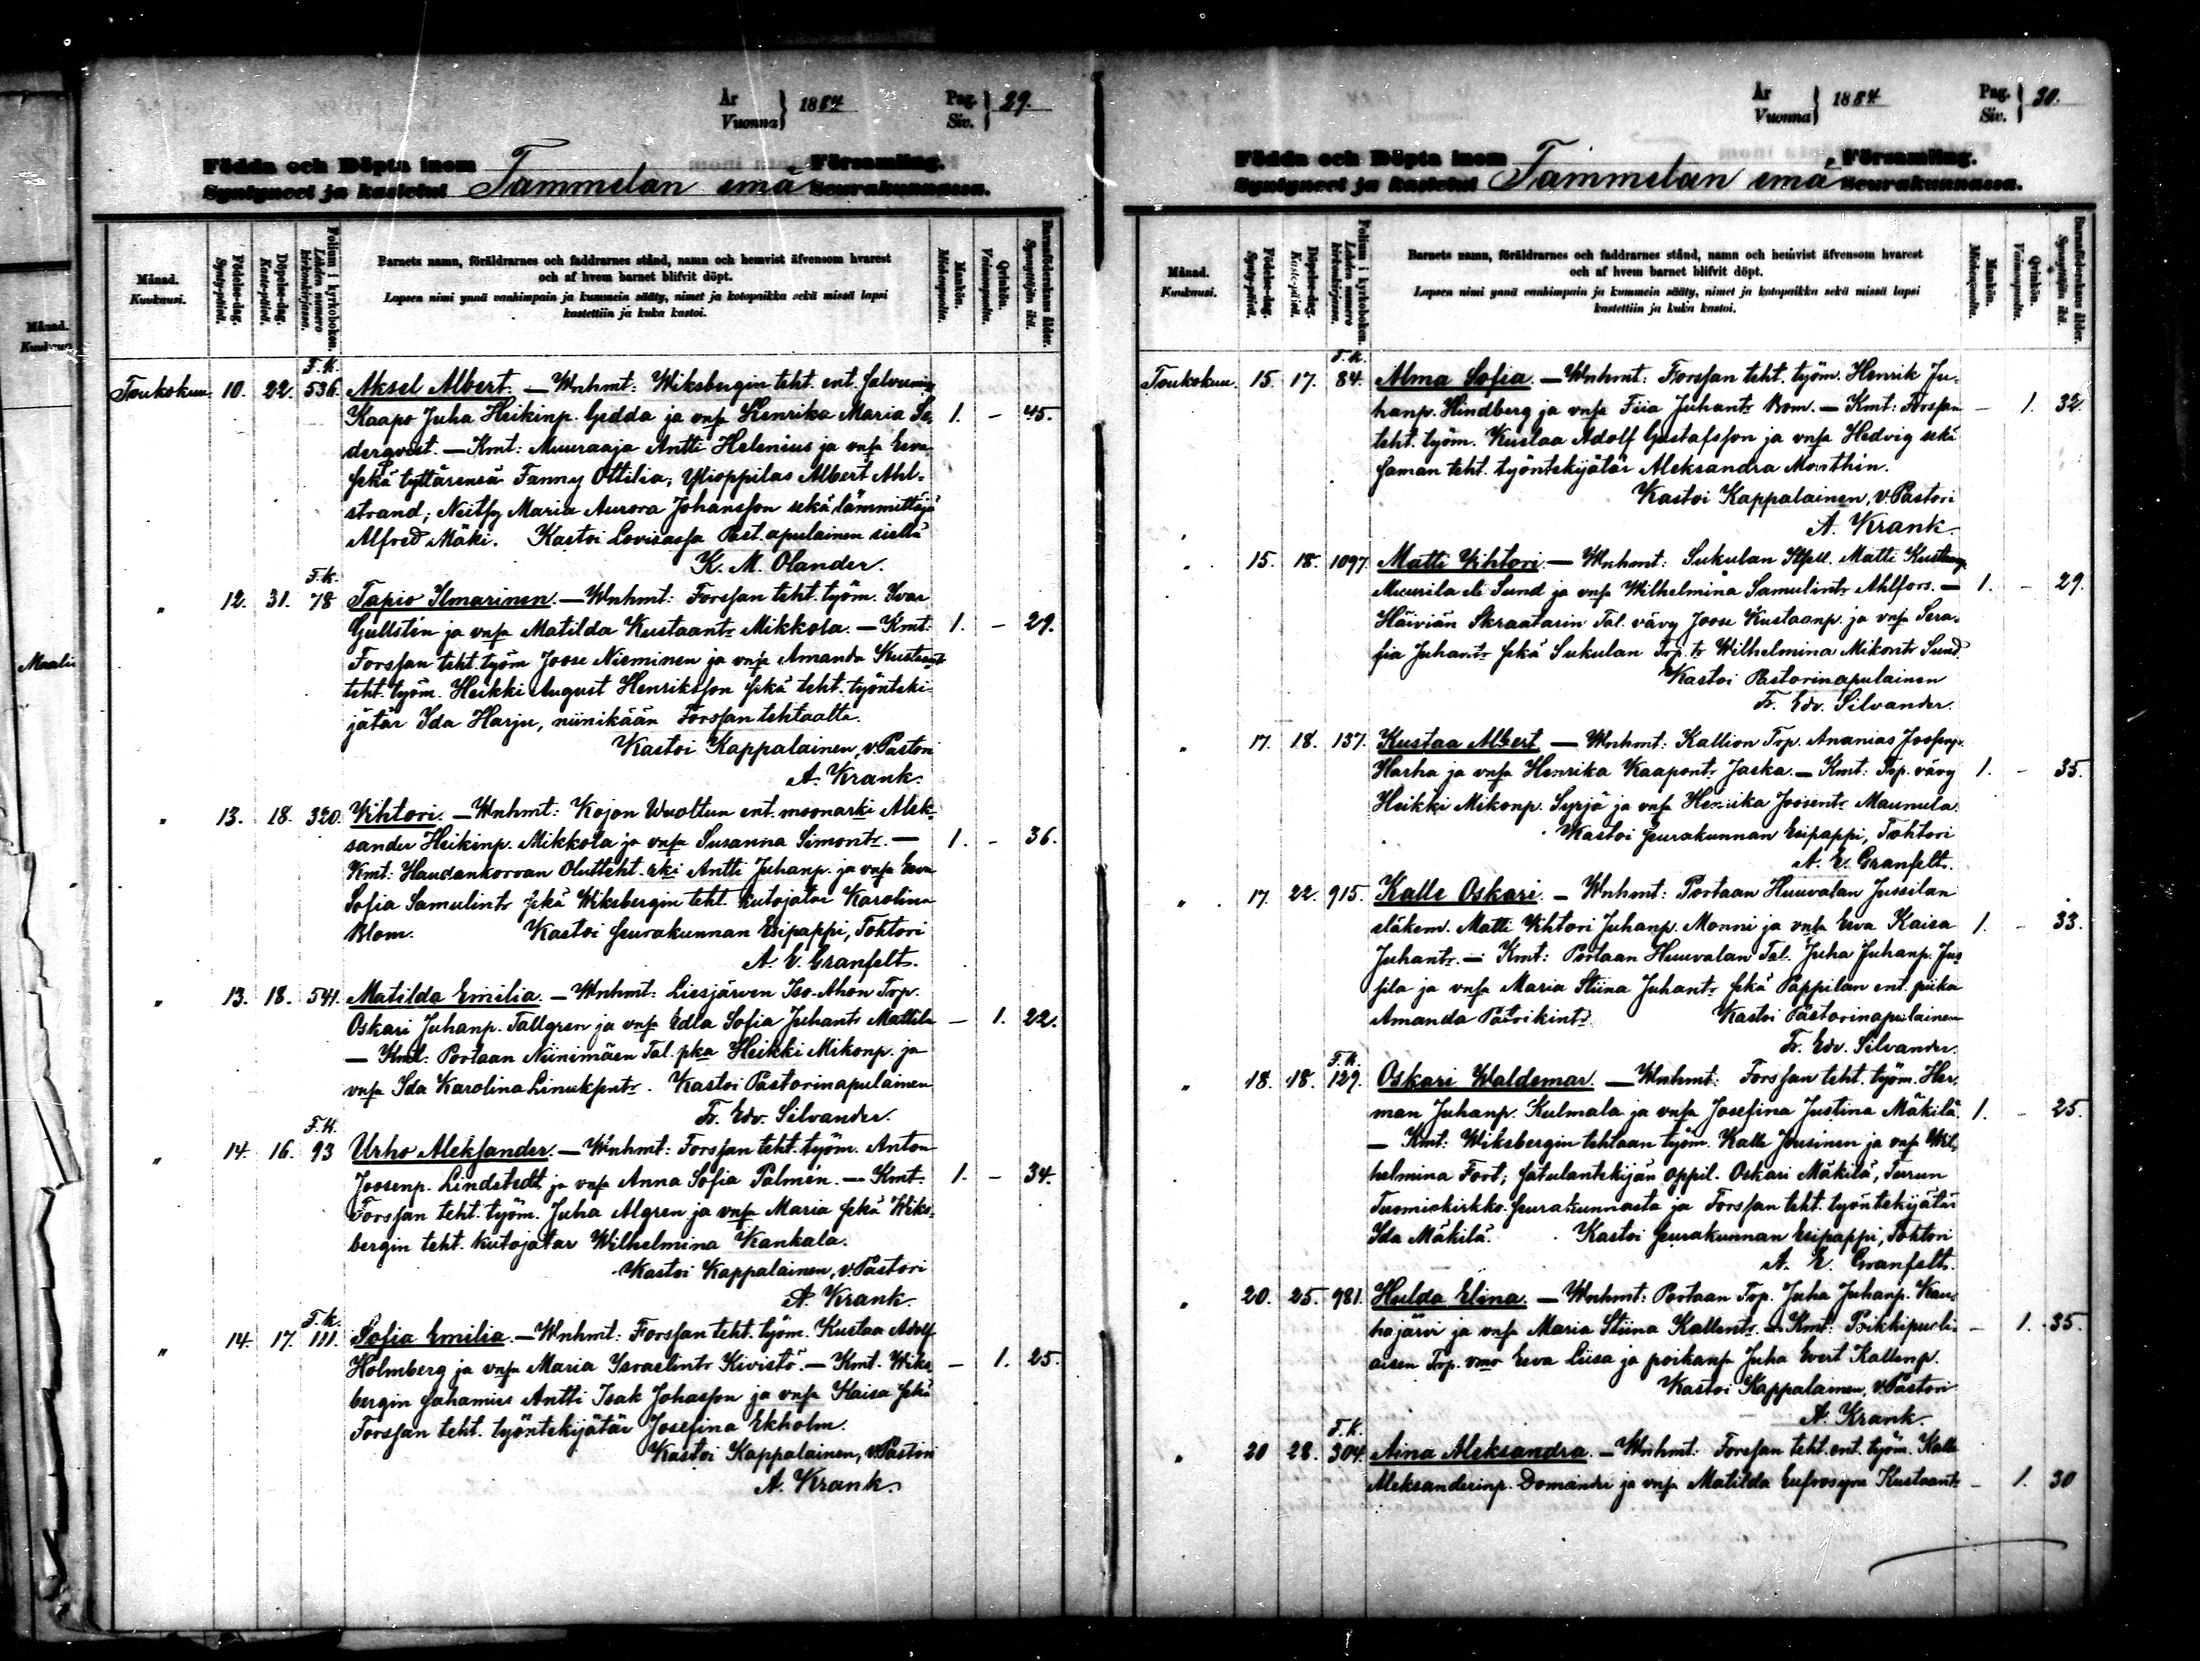 År
Vuonna } 1884
Pag.
Siv. } 29.
Födda och Döpta inom Församling.
Syntyneet ja kastetut Tammelan emä Seurakunnassa.
Månad.
Kuukausi.
Födelse-dag.
Synty-päivä.
Döpelse-dag.
Kaste-päivä.
Folium i kyrkoboken.
Lehden numero kirkonkirjassa.
Barnets namn, föräldrarnes och faddrarnes stånd, namn och hemvist äfvensom hvarest
och af hvem barnet blifvit döpt.
Lapsen nimi ynnä vanhimpain ja kummein sääty, nimet ja kotopaikka sekä missä lapsi
kastettiin ja kuka kastoi.
Mankön.
Miehenpuolta.
Qvinkön.
Vaimonpuolta.
Barnaföderskans ålder.
Synnyttäjän ikä.
F.K.
Toukokuu. 10. 22. 536. Aksel Albert. — Wnhmt: Wiksbergin teht. ent.
Kaapo Juha Heikinp. Gedda ja vnsa Henrika Maria Se- 1. - 45.
derqvist. — Kmt: Muuraaja Antti Helenius ja vnsa Eeva
sekä tyttärensä Fanny Ottilia, Ylioppilas Albert Ahl-
strand, Neitsy Maria Aurora Johansson sekä lämmittäjä
Alfred Mäki. Kastoi Lovisassa Past. apulainen sieltä
K. M. Olander.
F.K.
" 12. 31. 78 Tapio Ilmarinen. — Wnhmt: Forssan teht. työm. Ivar
Gullstén ja vnsa Matilda Kustaantr Mikkola. — Kmt: 1. - 29.
Forssan teht. työm Joose Nieminen ja vnsa Amanda Kustaant
teht. työm. Heikki August Henriksson sekä teht. työnteki-
jätär Ida Harju, niinikään Forssan tehtaalta.
Kastoi Kappalainen, v. Pastori
A. Krank.
" 13. 18. 320. Vihtori. — Wnhmt: Kojon Uuoltun ent. moonarki Alek-
sander Heikinp. Mikkola ja vnsa Susanna Simontr. — 1. - 36.
Kmt: Haudankorvan Olutteht. rki Antti Juhanp. ja vnsa Eeva
Sofia Samulintr sekä Wiksbergin teht. kutojatar Karolina
Blom. Kastoi seurakunnan Esipappi, Tohtori
A. E. Granfelt.
" 13. 18. 541. Matilda Emilia. — Wnhmt: Liesjärven Iso-Ahon Trp.
Oskari Juhanp. Tallgren ja vnsa Edla Sofia Juhantr Mattila — 1. 22.
— Kmt: Portaan Niinimäen Tal. pka Heikki Mikonp. ja
vnsa Ida Karolina Linukspntr. Kastoi Pastorinapulainen
Fr. Edv. Silvander.
F.K.
" 14. 16. 93 Urho Aleksander. — Wnhmt: Forssan teht. työm. Anton
Joosenp. Lindstedt ja vnsa Anna Sofia Palmén. — Kmt. 1. - 34.
Forssan teht. työm. Juha Algren ja vnsa Maria sekä Wiks-
bergin teht. kutojatar Wilhelmina Kankala.
Kastoi Kappalainen, v. Pastori
A. Krank.
F.K.
" 14. 17. 111. Sofia Emilia. — Wnhmt: Forssan teht. työm. Kustaa Adolf
Holmberg ja vnsa Maria Israelintr Kivistö. — Kmt. Wiks- — 1. 25.
bergin sahamies Antti Isak Johasson ja vnsa Kaisa sekä
Forssan teht. työntekijätär Josefina Ekholm.
Kastoi Kappalainen, v. Pastori
A. Krank.
År
Vuonna } 1884.
Pag.
Siv. } 30.
Födda och Döpta inom Församling.
Syntyneet ja kastetut Tammelan emä Seurakunnassa.
Månad.
Kuukausi.
Födelse-dag.
Synty-päivä.
Döpelse-dag.
Kaste-päivä.
Folium i kyrkoboken.
Lehden numero kirkonkirjassa.
Barnets namn, föräldrarnes och faddrarnes stånd, namn och hemvist äfvensom hvarest
och af hvem barnet blifvit döpt.
Lapsen nimi ynnä vanhimpain ja kummein sääty, nimet ja kotopaikka sekä missä lapsi
kastettiin ja kuka kastoi.
Mankön.
Miehenpuolta.
Qvinkön.
Vaimonpuolta.
Barnaföderskans ålder.
Synnyttäjän ikä.
F.K.
Toukokuu. 15. 17. 84. Alma Sofia. — Wnhmt: Forssan teht. työm. Henrik Ju-
hanp. Hindberg ja vnsa Fiia Juhantr Bom. — Kmt: Forssan — 1. 32
teht. työm. Kustaa Adolf Gustafsson ja vnsa Hedvig sekä
saman teht. työntekijätär Aleksandra Morthin.
Kastoi Kappalainen, v. Pastori
A. Krank.
" 15. 18. 1097. Matti Vihtori. — Wnhmt: Sukulan Matti Kustaanp.
Muurila eli Sund ja vnsa Wilhelmina Samulintr Ahlfors. — 1. - 29.
Häiviän Skraatarin Tal. vävy Joose Kustaanp. ja vnsa Sera-
fia Juhantr sekä Sukulan Trp. tr Wilhelmina Mikontr Sund.
Kastoi Pastorinapulainen
Fr. Edv. Silvander.
" 17. 18. 137. Kustaa Albert — Wnhmt: Kallion Trp. Ananias Joosenp.
Harha ja vnsa Henrika Kaapontr Jaska. — Kmt: Trp. vävy 1. - 35.
Heikki Mikonp. Syrjä ja vnsa Henrika Joosentr Maunula.
Kastoi seurakunnan Esipappi, Tohtori
A. E. Granfelt.
" 17. 22. 915. Kalle Oskari. — Wnhmt: Portaan Huuvalan Jussilan
eläkem. Matti Vihtori Juhanp. Monni ja vnsa Eeva Kaisa 1. - 33.
Juhantr. — Kmt: Portaan Huuvalan Tal. Juha Juhanp. Jus-
sila ja vnsa Maria Stiina Juhantr sekä Pappilan ent. piika
Amanda Patrikintr. Kastoi Pastorinapulainen
Fr. Edv. Silvander.
F.K.
" 18. 18. 129. Oskari Waldemar. — Wnhmt: Forssan teht. työm. Her-
man Juhanp. Kulmala ja vnsa Josefina Justina Mäkilä 1. - 25.
— Kmt: Wiksbergin tehtaan työm. Kalle Jousinen ja vnsa Wil-
helmina Fort; satulantekijän oppil. Oskari Mäkilä, Turun
Tuomiokirkko-seurakunnasta ja Forssan teht. työntekijätär
Ida Mäkilä. Kastoi seurakunnan Esipappi, Tohtori
A. E. Granfelt.
" 20. 25. 981. Hulda Elina. — Wnhmt: Portaan Trp. Juha Juhanp. Kau-
hajärvi ja vnsa Maria Stiina Kallentr. — Kmt: Poikkipuoli- — 1. 35.
aisen Trp. vmo Eeva Liisa ja poikansa Juha Evert Kallenp.
Kastoi Kappalainen, v. Pastori
A. Krank.
F.K.
" 20 28. 304. Aina Aleksandra. — Wnhmt: Forssan teht. ent. työm. Kalle
Aleksanderinp. Domander ja vnsa Matilda Eufrosyna Kustaantr — 1. 30
Månad.
Maalis